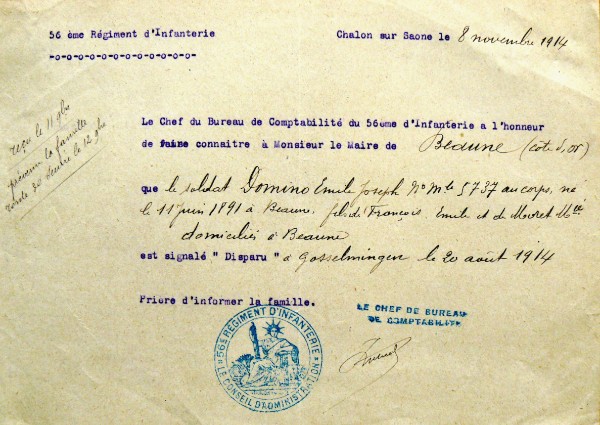 56 ème Régiment d'Infanterie
-o-o-o-o-o-o-o-o-o-o-o-o-o-
Chalon sur Saone le 8 novembre 1914
reçu le 11 9bre
prévenir la famille
le 12 9bre
Le Chef du Bureau de Comptabilité du 56ème d'Infanterie a l'honneur
de faire connaitre à Monsieur le Maire de Beaune (côte d'or)
que le soldat Domino Emile Joseph No Mle 5737 au corps, né
le 11 juin 1891 à Beaune, fils de François, Emile et de Moret
domiciliés à Beaune
est signalé " Disparu " à Gosselmingen le 20 août 1914
Prière d'informer la famille.
LE CHEF DE BUREAU
DE COMPTABILITE
56E REGIMENT D'INFANTERIE
LE CONSEIL D'ADMINISTRATION